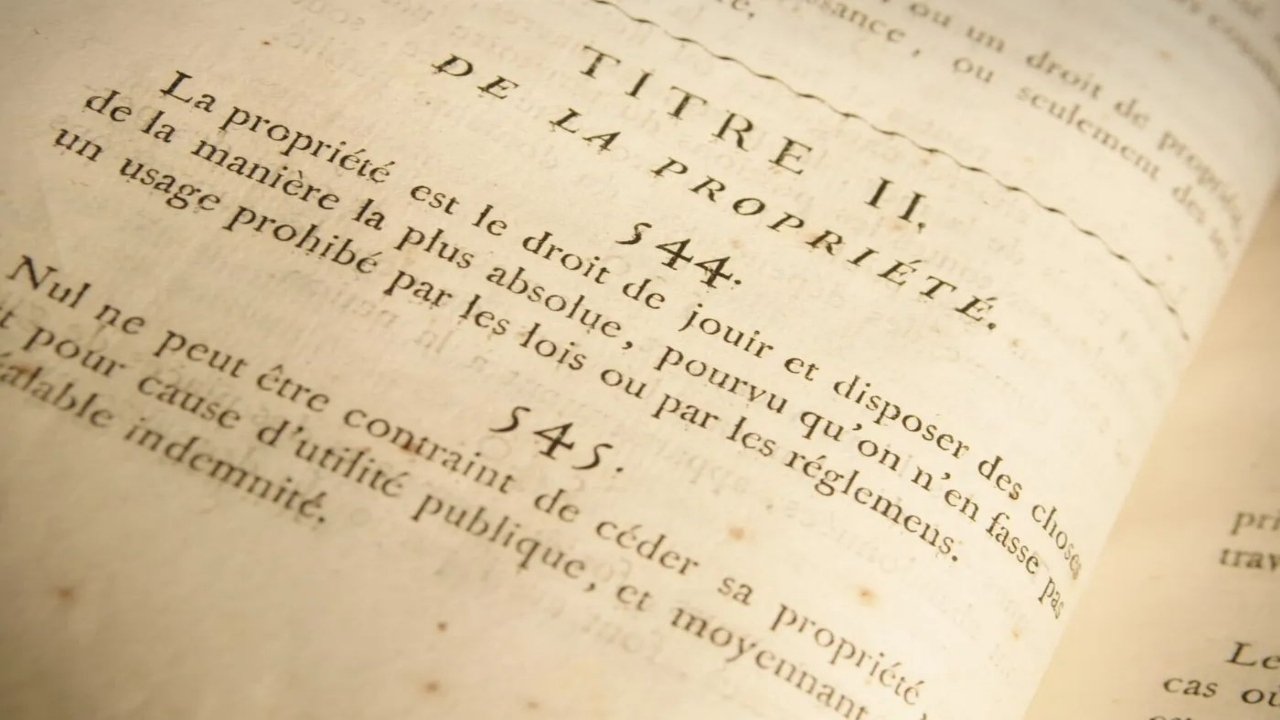 ou un droit de propriété,
ou seulement des
TITRE II.
DE LA PROPRIÉTÉ.
544.
La propriété est le droit de jouir et disposer des choses
de la manière la plus absolue, pourvu qu'on n'en fasse pas
un usage prohibé par les lois ou par les réglemens.
545.
Nul ne peut être contraint de céder sa propriété,
pour cause d'utilité publique, et moyennant
indemnité.
Le
cas où